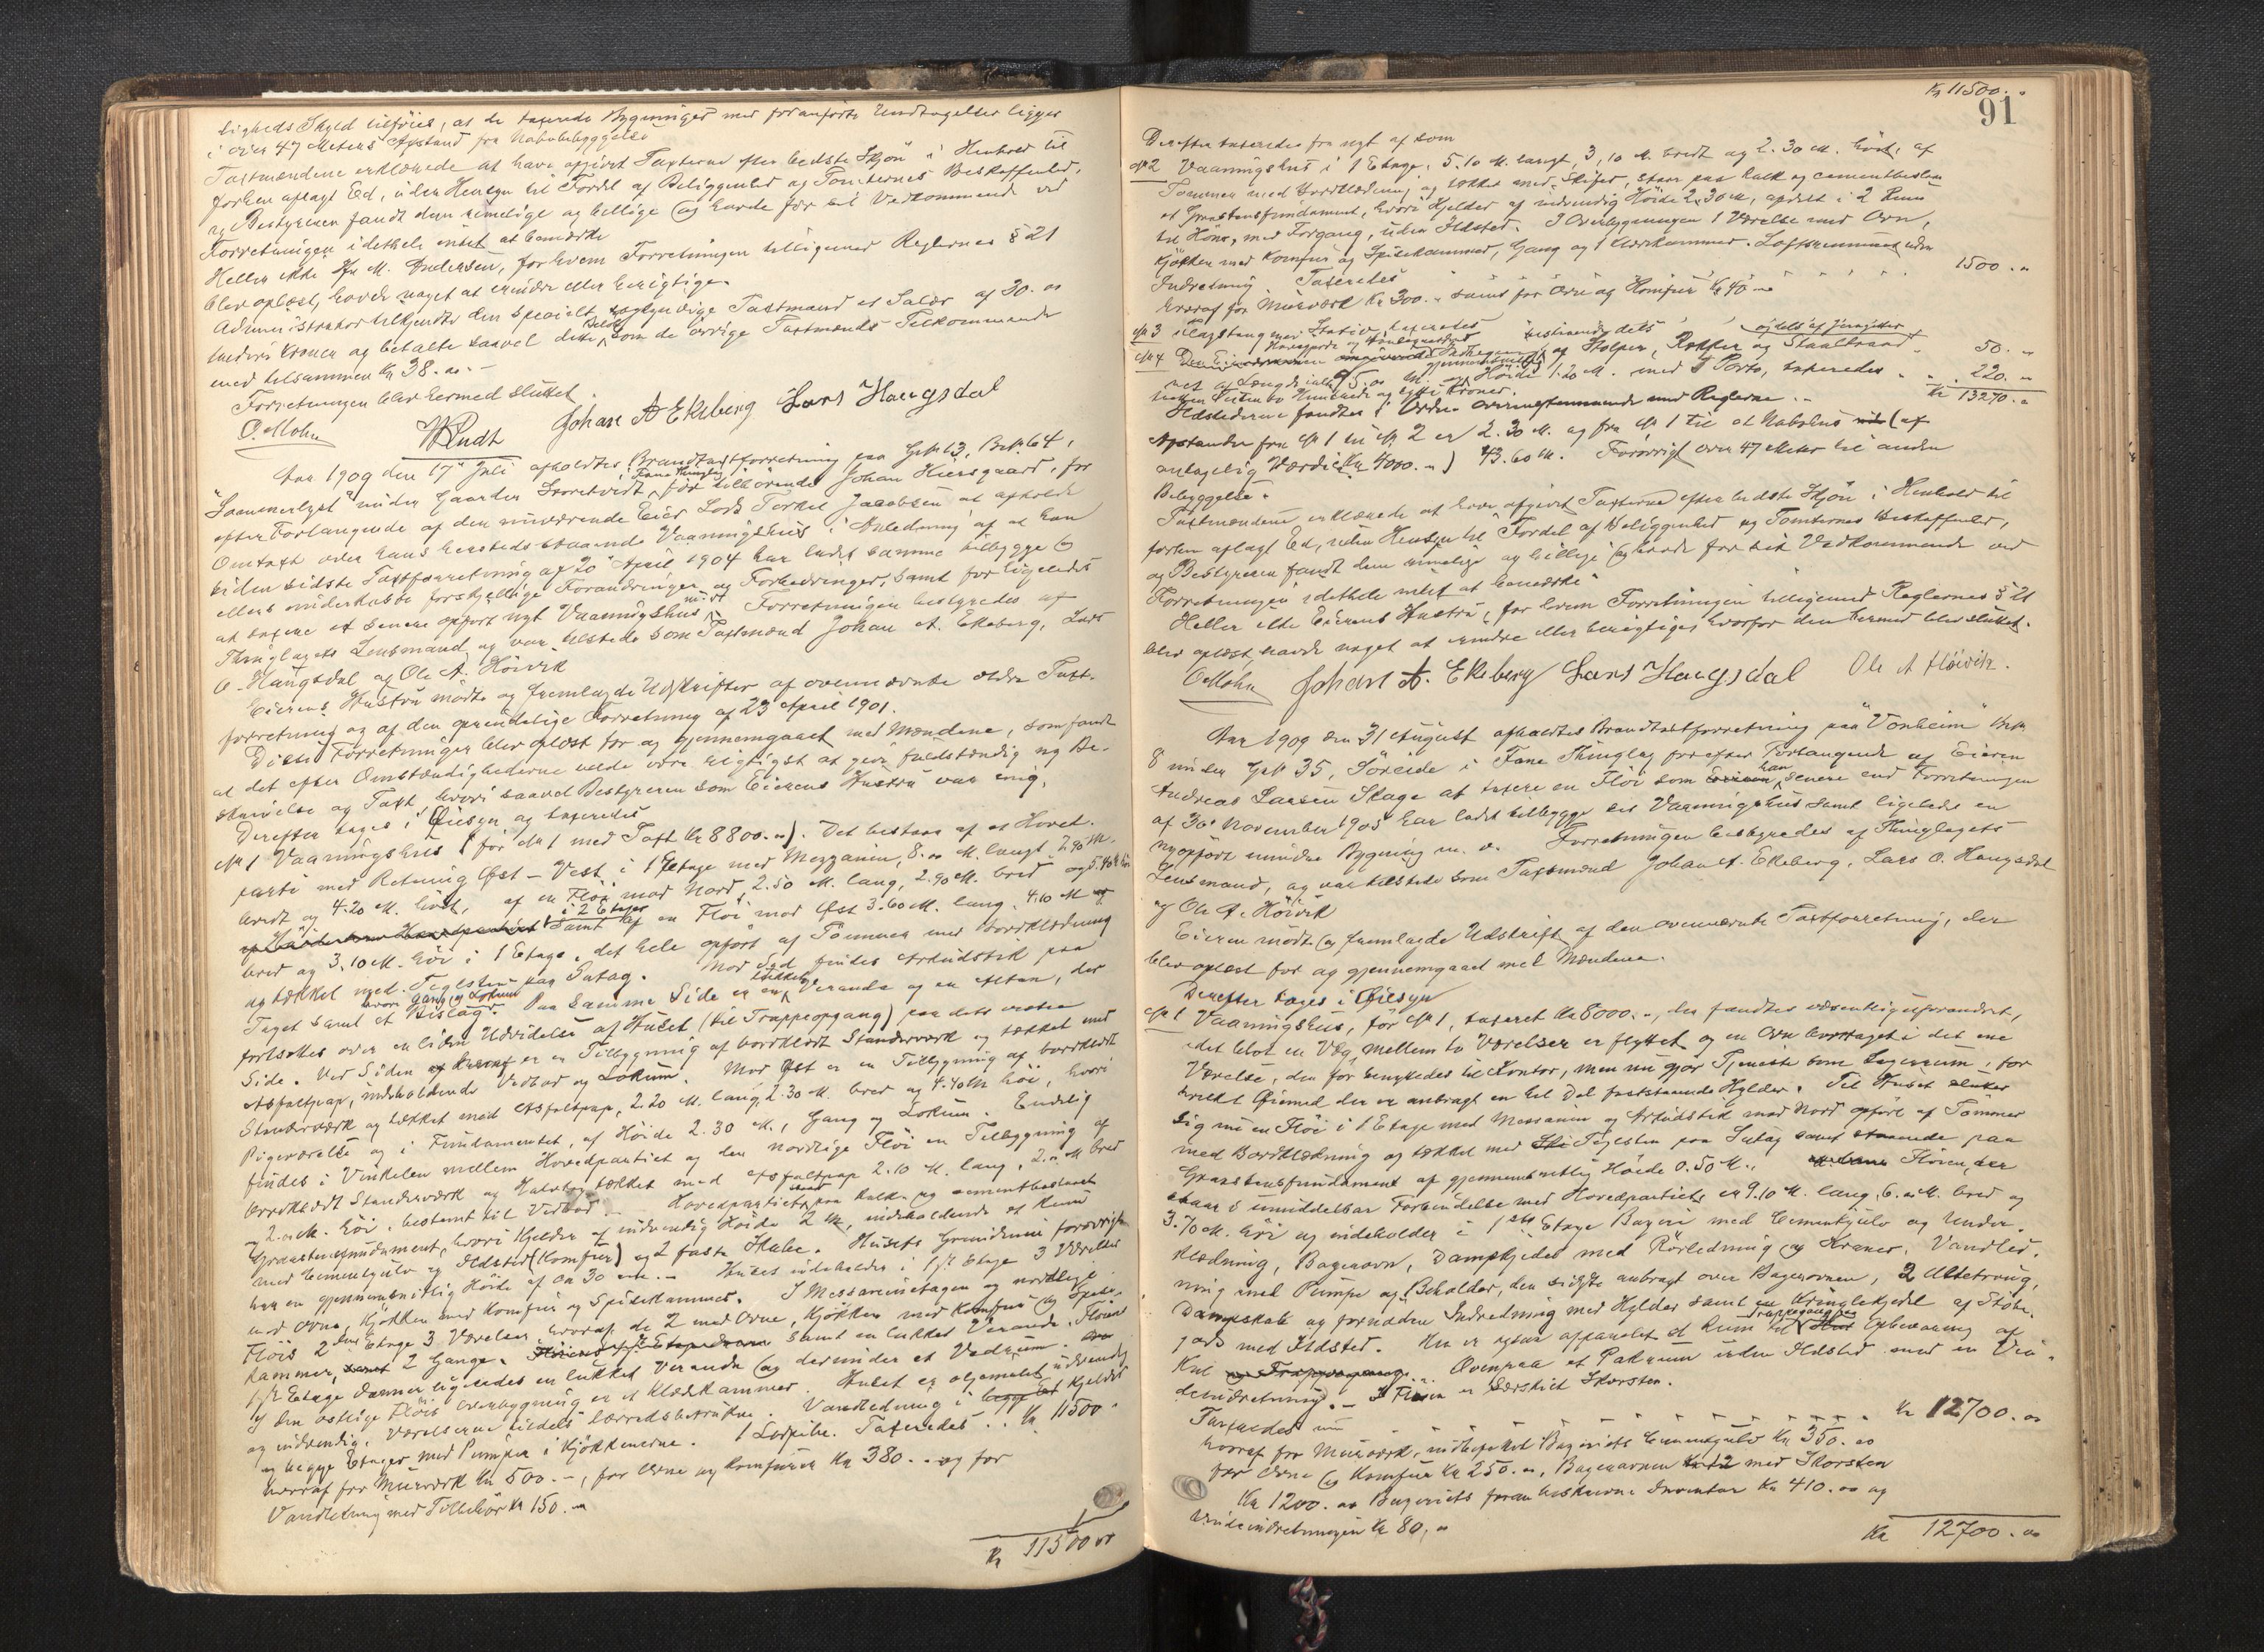 ligheds Skyld tilføies, at de taxerede Bygninger med foranførte Undtagelser ligger
i over 47 Meters Afstand fra Nabobebyggelse
Taxtmændene erklærede at have afgivet Taxterne efter bedste Skjøn i Henhold til
forhen aflagt Ed, uden Hensyn til Fordel af Beliggenhed og Tomternes Beskaffenhed,
og Bestyreren fandt dem rimelige og billige og havde for sit Vedkommende ved
Forretningen idethele intet at bemærke
Heller ikke Hr M. Andersen, for hvem Forretningen tilligemed Reglernes § 21
blev oplæst, havde noget at erindre eller berigtige.
Administrator tilkjendte den specielt sagkyndige Taxtmand et Salær af 30.00
tredive Kroner og betalte saavel dette Beløb som de øvrige Taxtmænds Tilkommende
med tilsammen Kr 38.00.-
Forretningen blev hermed sluttet.
O. Mohn Johan A Ekeberg Lars Haugsdal
Aar 1909 den 17de Juli afholdtes Brandtaxtforretning paa Gno 13, Bno 64,
"Sommerlyst" under Gaarden i Fana Thinglag før tilhørende Johan Hiersgaard, for
efter Forlangende af den nuværende Eier Lods Terkel Jacobsen at afholde
Omtaxt over hans hersteds staaende Vaaningshus i Anledning af at han
siden sidste Taxtforretning af 20de April 1904 har ladet samme tilbygge og
ellers underkaste forskjellige Forandringer og Forbedringer, samt for ligeledes
at taxere et senere opført nyt Vaaningshus m. v. Forretningen bestyredes af
Thinglagets Lensmand og var tilstede som Taxtmænd Johan A. Ekeberg, Lars
O. Haugsdal og Ole A. Høivik
Eierens Hustru mødte og fremlagde Udskrifter af ovennævnte ældre Taxt-
forretning og af den oprindelige Forretning af 23 April 1901.
Disse Forretninger blev oplæst for og gjennemgaaet med Mændene, som fandt
at det efter Omstændighederne vilde være rigtigst at give fuldstændig ny Be-
skrivelse og Taxt, hvori saavel Bestyreren som Eierens Hustru var enig.
Derefter toges i Øiesyn og taxeredes
No 1 Vaaningshus (før No 1 med Taxt Kr 8800.00). Det bestaar af et Hoved-
parti med Retning Øst - Vest i 1 Etage med Mezzanin, 8.00 M. langt, 7.90 M.
bredt og 4.20 M. høit, af en Fløi mod Nord, 2.50 M. lang, 2.90 M. bred og 5.40 M. høi
i 2 Etager samt af en Fløi mod Øst 3.60 M. lang, 4.10 M
bred og 3.10 M. høi i 1 Etage, det hele opført af Tømmer med Bordklædning
og tækket med Teglsten paa Sutag. Mod Syd findes Arkudstik paa
Taget samt et Bislag hvori Gang og Lokum. Paa samme Side er en lukket Veranda og en Altan, der
fortsættes over en liden Udvidelse af Huset (til Trappeopgang) paa dets vestre
Side. Ved Siden af herav er en Tilbygning af bordklædt Standerværk og tækket med
Asfaltpap, indeholdende Vedbod og Lokum. Mod Øst er en Tilbygning af bordklædt
Standerværk og tækket med Asfaltpap, 2.20 M. lang, 2.30 M. bred og 4.40 M høi, hvori
Pigeværelse og i Fundamentet, af Høide 2.30 M., Gang og Lokum. Endelig
findes i Vinkelen mellem Hovedpartiet og den nordlige Fløi en Tilbygning af
bordklædt Standerværk og Halvtag tækket med Asfaltpap 2.10 M. lang, 2.00 M bred
og 2.00 M. høi, bestemt til Vedbod.- Hovedpartiet staar paa kalk- og cementbeslaaet
Graastensfundament, hvori Kjelder af indvendig Høide 2 M, indeholdende et Rum
med Cementgulv og Ildsted (Komfur) og 2 faste Skabe. Husets Grundmur forøvrigt
har en gjennemsnitlig Høide af ca 30 cm.- Huset indeholder i 1ste Etage 3 Værelser
med Ovne, Kjøkken med Komfur og Spisekammer. I Messaninetagen og nordlige
Fløis 2den Etage 3 Værelser, hvoraf de 2 med Ovne, Kjøkken med Komfur og Spise-
kammer, samt 2 Gange. samt en lukket Veranda. Fløiens
1ste Etage danner ligeledes en lukket Veranda og derunder et Vedrum.
I den østlige Fløis Overbygning er et Klædekammer. Huset er oljemalet udvendig
og indvendig. Værelserne tildels lærredsbetrukne. Vandledning i Kjelder
og begge Etager med Pumper i Kjøkkenerne. 1 Lynpibe. Taxeredes . . Kr 11500.-
hvoraf for Murværk Kr 500.-, for Ovne og Komfurer Kr 380.- og for
Vandledning med Tilbehør Kr 150.00
Kr 11500.00
Kr 11500.00
91
Derefter taxeredes fra nyt af som
No 2 Vaaningshus i 1 Etage, 5.10 M. langt, 3,10 M. bredt og 2.30 M. høit, af
Tømmer med Bordklædning og tækket med Skifer, staar paa kalk og cementbeslaaet
et Graastensfundament, hvori Kjelder af indvendig Høide 2.30 M, opdelt i 2 Rum
til Høns, med Forgang, uden Ildsted. I Overbygningen 1 Værelse med Ovn,
Kjøkken med Komfur og Spisekammer, Gang og 1 Klædekammer. Loftsrummet uden
Indredning. Taxeredes 1500.00
hvoraf for Murværk Kr 300.- samt for Ovn og Komfur Kr 40.00
No 3 Flagstang med Stativ, taxeredes 50.00
No 4 bestaaende dels af Stolper, Rækker og Staaltraad og dels af Jerngitter
M. og Høide 1.20 M. med 1 Port, taxeredes 220.00
Kr 13270.00
Ildstederne fandtes i Orden overensstemmende med Reglerne.-
Afstanden fra No 1 til No 2 er 2.30 M. og fra No 1 til et Nabohus (af
antagelig Værdi Kr 4000.00) 43.60 M. Forøvrigt over 47 Meter til anden
Bebyggelse.
Taxtmændene erklærede at have afgivet Taxterne efter bedste Skjøn i Henhold til
forhen aflagt Ed, uden Hensyn til Fordel af Beliggenhed og Tomternes Beskaffenhed,
og Bestyreren fandt dem rimelige og billige og havde for sit Vedkommende ved
Forretningen idethele intet at bemærke.
Heller ikke Eierens Hustru, for hvem Forretningen tilligemed Reglernes § 21
blev oplæst, havde noget at erindre eller berigtige, hvorfor den hermed blev sluttet.
O Mohn Johan A. Ekeberg Lars Haugsdal Ole A Høivik.
Aar 1909 den 31 August afholdtes Brandtaxtforretning paa "Vonheim" Bno
8 under Gno 35, Søreide i Fane Thinglag for efter Forlangende af Eieren
Andreas Larsen Skage at taxere en Fløi som han senere end Forretningen
af 30 November 1905 har ladet tilbygge sit Vaaningshus samt ligeledes en
nyopført mindre Bygning m. v. Forretningen bestyredes af Thinglagets
Lensmand, og var tilstede som Taxtmænd Johan A. Ekeberg, Lars O. Haugsdal
og Ole A. Høivik
Eieren mødte og fremlagde Udskrift af den ovennævnte Taxtforretning, der
blev oplæst for og gjennemgaaet med Mændene.
Derefter toges i Øiesyn
No 1 Vaaningshus, før No 1, taxeret Kr 8000.-, der fandtes væsentlig uforandret,
idet blot en Væg mellem to Værelser er flyttet og en Ovn borttaget i det ene
Værelse, der før benyttedes til Kontor, men nu gjør Tjeneste som Lagerrum, for
hvilket Øiemed der er anbragt en hel Del faststaaende Hylder. Til Huset slutter
sig nu en Fløi i 1 Etage med Messanin og Arkudstik mod Nord opført af Tømmer
med Bordklædning og tækket med Teglsten paa Sutag samt staaende paa
Graastensfundament af gjennemsnitlig Høide 0.50 M., Fløien, der
staar i umiddelbar Forbindelse med Hovedpartiet, er 9.10 M. lang, 6.00 M. bred og
3.70 M. høi og indeholder i 1ste Etage Bageri med Cementgulv og Under-
klædning, Bagerovn, Dampkjedel med Rørledning og Kraner, Vandled-
ning med Pumpe og Beholder, den sidste anbragt over Bagerovnen, 2 Æltetroug,
Dampskab og fornøden Indredning med Hylder samt en Kringlekjedel af Støbe-
gods med Ildsted. Her er ogsaa afpanelet et Rum til Trappegang og Opbevaring af
Kul. Ovenpaa et Pakrum uden Ildsted med en Vin-
deindretning.- I Fløien er særskilt Skorsten.
Taxeredes nu Kr 12700.00
hvoraf for Murværk, indbefattet Bageriets Cementgulv Kr 350.00
for Ovne og Komfur Kr 250.00, Bagerovnen med Skorsten
Kr 1200.00 Bageriets foran beskrevne Inventar Kr 410.00 og
Vindeindretningen Kr 80,00
Kr 12700.00